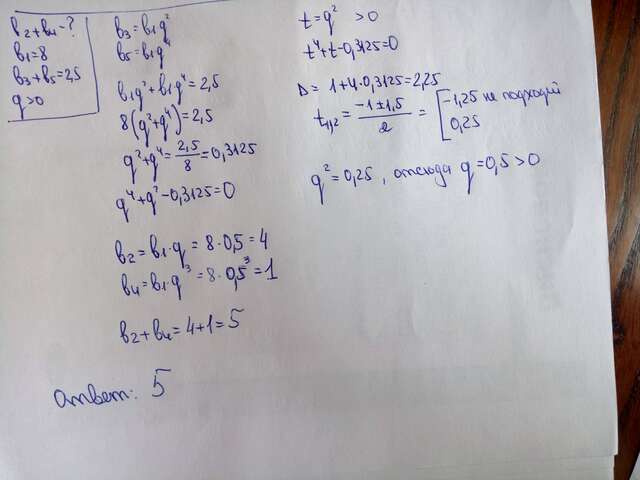 b₂+b₄-?
b₁=8
b₃+b₅=2,5
q>0
b₃=b₁q²
b₅=b₁q⁴
b₁q²+b₁q⁴=2,5
8(q²+q⁴)=2,5
q²+q⁴=2,5/8=0,3125
q⁴+q²-0,3125=0
b₂=b₁·q=8·0,5=4
b₄=b₁·q³=8·0,5³=1
b₂+b₄=4+1=5
ответ: 5
t=q² >0
t⁴+t-0,3125=0
D=1+4·0,3125=2,25
t₁,₂=(-1±1,5)/2=[-1,25 не подходий
0,25
q²=0,25, отсюда q=0,5>0